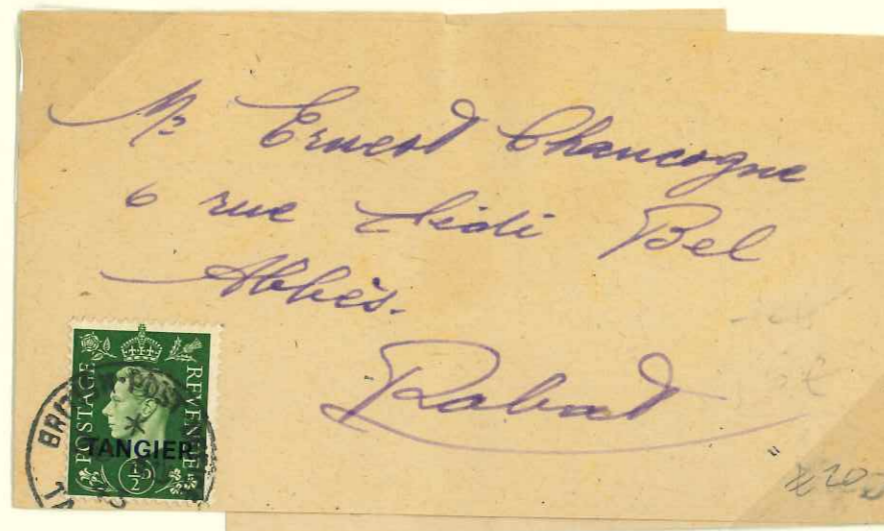 Mr Ernest Chancogne
6 rue Sidi Bel
Abbès.
Rabat
POSTAGE REVENUE
TANGIER
½D
BRITISH POST